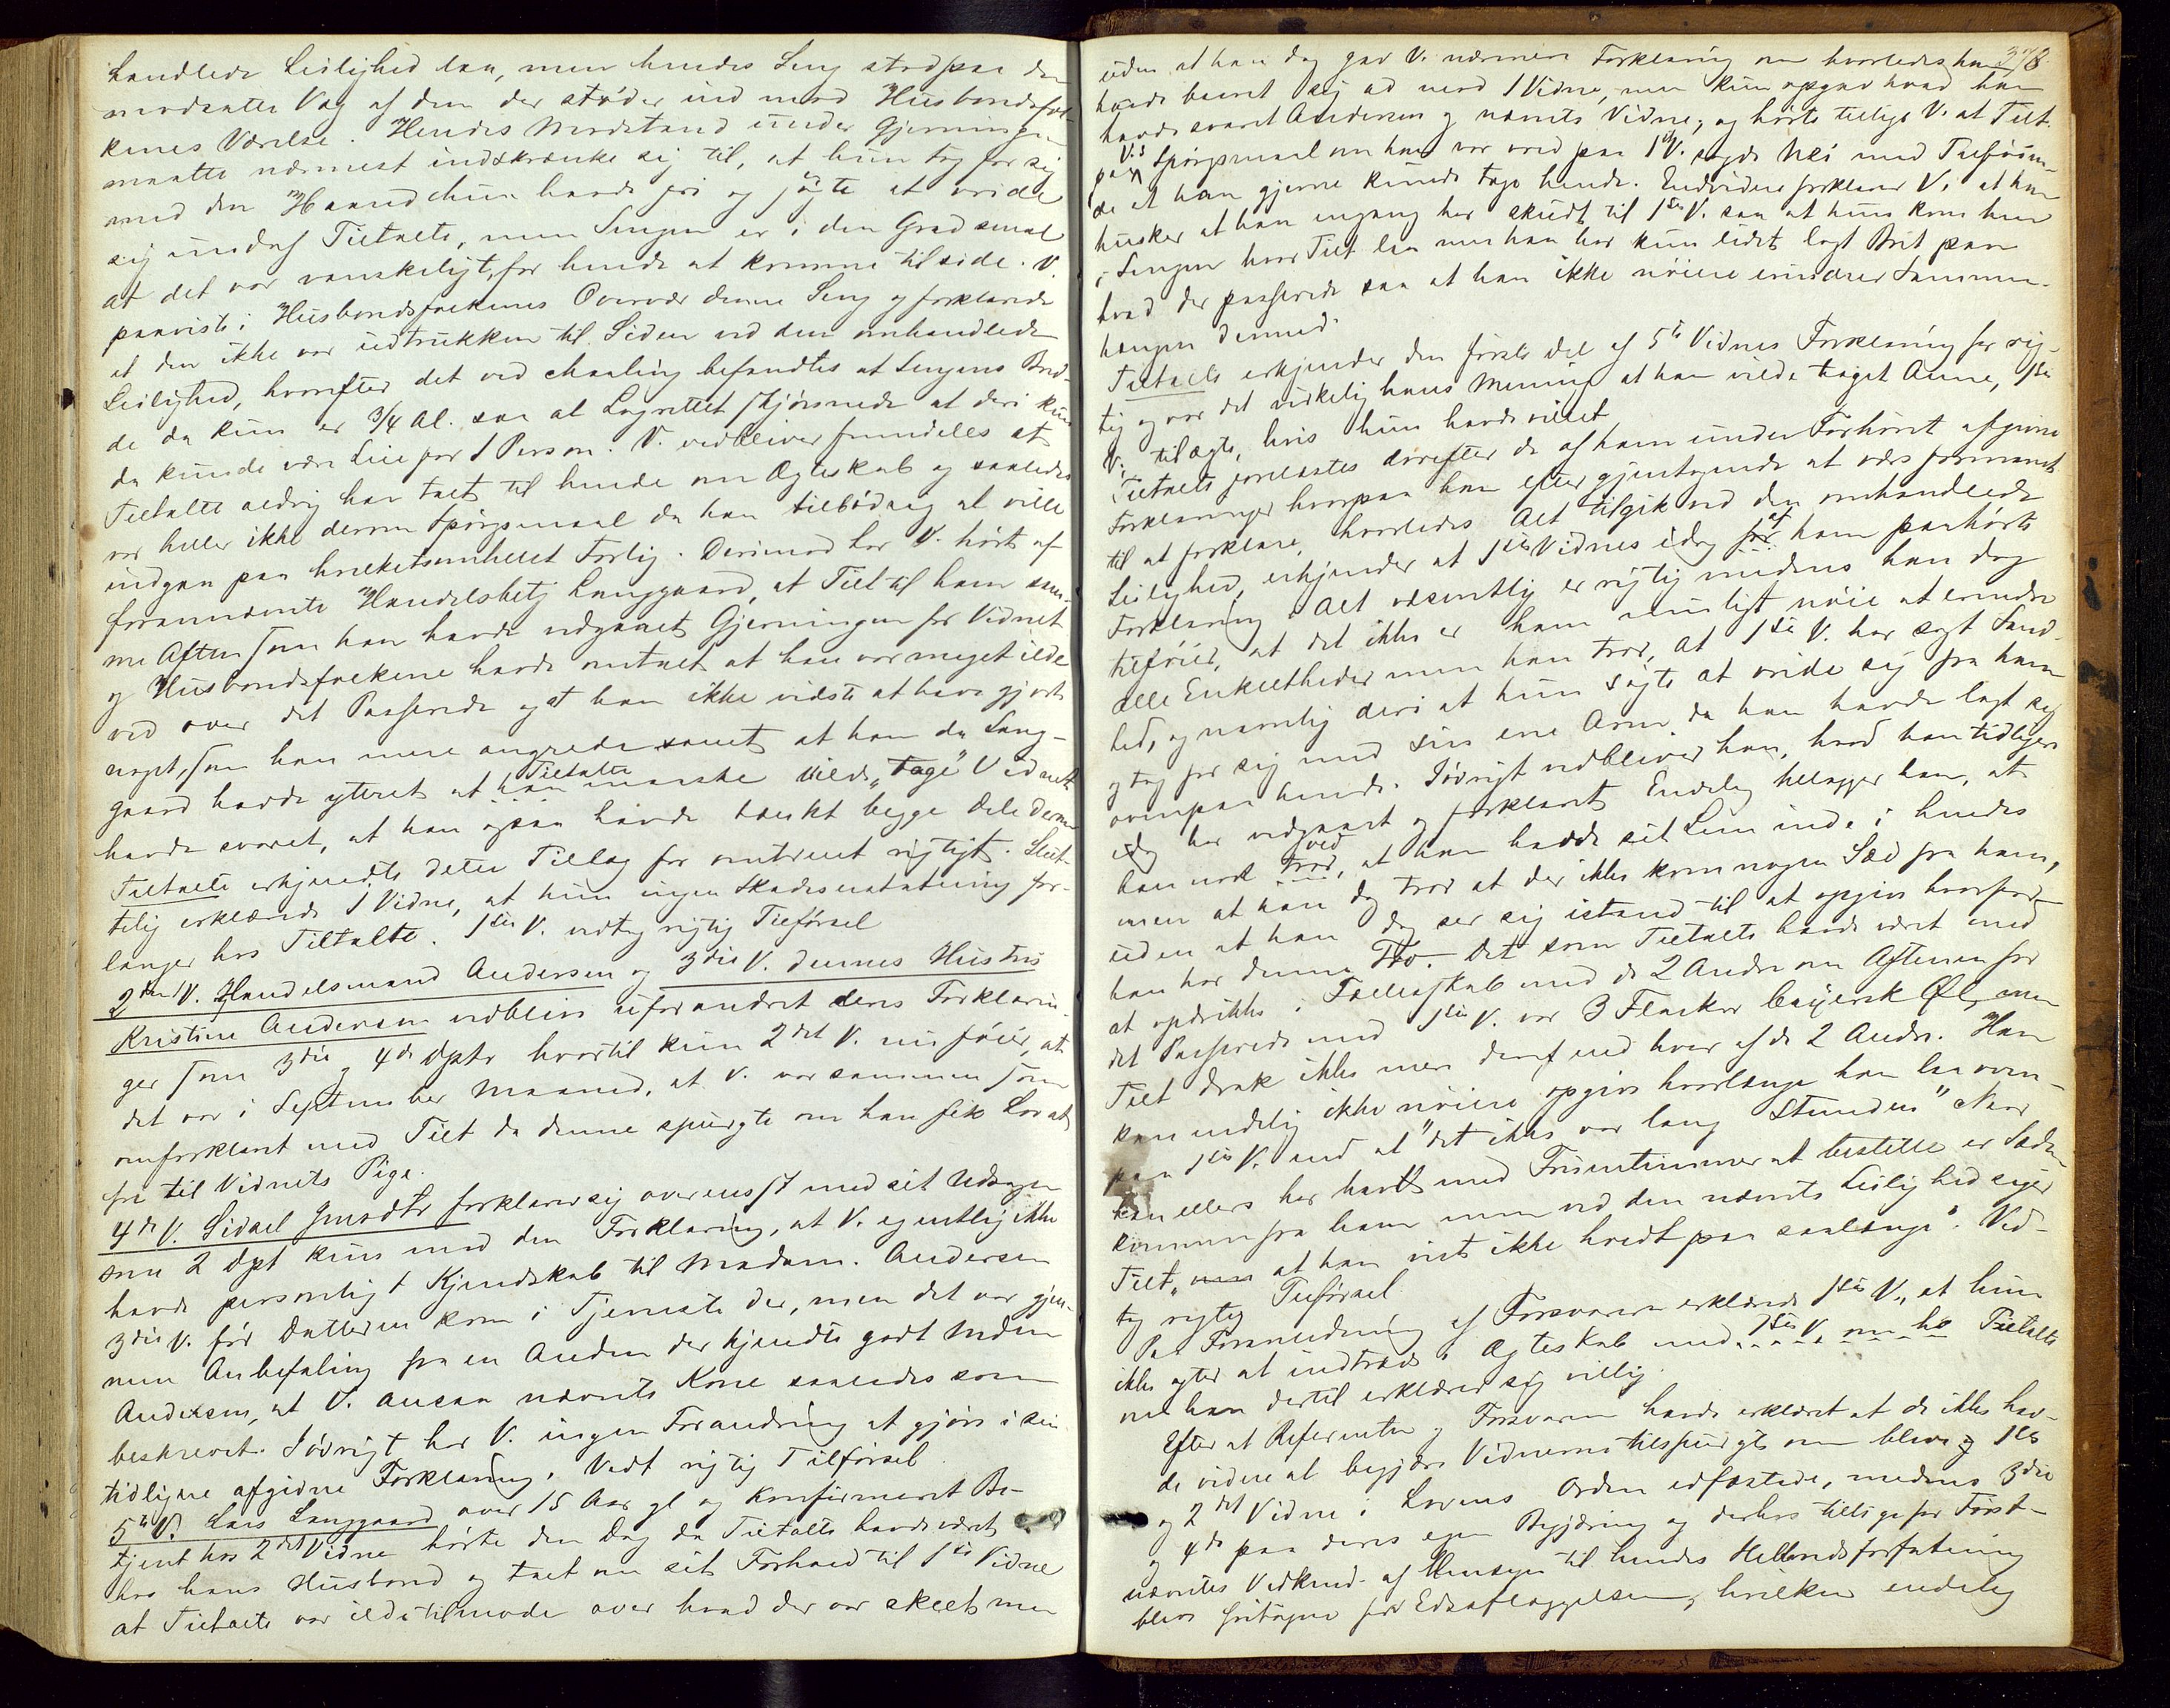 handlede Leilighed laa, men hendes Seng stod paa den
modsatte Væg af den der støder ind mod Husbondsfol-
kenes Værelse. Hendes Modstand under Gjerningen
maatte nærmest indskrænke sig til, at hun tog for sig
med den Haand hun havde fri og søgte at vride
sig undaf Tiltalte, men Sengen er i den Grad smal
at det var vanskeligt for hende at komme tilside. V.
paaviste i Husbondsfolkenes Overvær denne Seng og forklarede
at den ikke var udtrukken til Siden ved den omhandlede
Leilighed, hvorefter det ved Maaling befandtes at Sengens Bred-
de da kun er 3/4 Al. saa at Lagrettet skjønnede at deri kun
da kunde være Leie for 1 Person. V. vedbliver fremdeles at
Tiltalte aldrig har talt til hende om Ægteskab og saaledes
var heller ikke derom Spørgsmaal da han tilbød sig at ville
indgaa paa hvilketsomhelst Forlig. Derimod har V. hørt af
forannævnte Handelsbetj Langgaard, at Tilt til ham sam-
me Aften som han havde vedgaaet Gjerningen for Vidnet
og Husbondsfolkene havde omtalt at han var meget ilde
ved over det Passerede og at han ikke vidste at have gjort
noget, som han mere angrede samt at han da Lang-
gaard havde yttret at han Tiltalte maaske vilde "tage" Vidnet
havde svaret, at han ogsaa havde tænkt begge Dele derom
Tiltalte erkjendte dette Tillæg for omtrent rigtigt. Slut-
telig erklærede 1 Vidne, at hun ingen Skadeserstatning for-
langer hos Tiltalte. 1ste V. vedtog rigtig Tilførsel
2det V. Handelsmand Andersen og 3die V. dennes Hustru
Kristine Andersen vedblive uforandret deres Forklarin-
ger som 3die og 4de Dptr hvortil kun 2det V. nu føier, at
det var i September Maaned, at V. var sammen som
omforklaret med Tilt da denne spurgte om han fik Lov at
fri til Vidnets Pige.
4de V. Sidsel Jensdtr forklarer sig overensst med sit Udsagn
som 2 Dpt kun med den Forklaring, at V. egentlig ikke
havde personligt Kjendskab til Madam. Andersen
3die V. før Datteren kom i Tjeneste der, men det var gjen-
nem Anbefaling fra en Anden der kjendte godt Mdm
Andersen, at V. ansaa nævnte Kone saaledes som
beskrevet. Iøvrigt har V. ingen Forandring at gjøre i sin
tidligere afgivne Forklaring. Vedt rigtig Tilførsel
5te V. Lars Langgaard over 15 Aar gl og Konfirmeret Be-
tjent hos 2det Vidne hørte den Dag da Tiltalte havde været
hos hans Husbond og talt om sit Forhold til 1ste Vidne
at Tiltalte var ilde tilmode over hvad der var skeet men
378
uden at han dog gav V. nærmere Forklaring om hvorledes han
havde baaret sig ad med 1 Vidne, men kun opgav hvad han
havde svaret Andersen og nævnte Vidne, og hørte tillige V. at Tilt.
paa V.s Spørgsmaal om han var vred paa 1ste V. sagde Nei med Tilføien-
de at han gjerne kunde tage hende. Endvidere forklarer V. at han
husker at han engang har skudt til 1ste V. saa at hun kom hen
i Sengen hvor Tilt laa men han har kun lidet lagt Brit paa
hvad der passerede saa at han ikke nøiere erindrer Sammen-
hængen dermed.
Tiltalte erkjender den første Del af 5te Vidnes Forklaring for rig-
tig og var det virkelig hans Mening at han vilde taget Anne, 1ste
V. tilægte, hvis hun havde villet
Tiltalte forelæstes derefter de af ham under Forhøret afgivne
Forklaringer hvorpaa han efter gjentagende at være formanet
til at forklare, hvorledes Alt tilgik ved den omhandlede
Leilighed, erkjender at 1ste Vidnes idag for af ham paahørte
Forklaring i Alt væsentlig er rigtig medens han dog
tilføier, at det ikke er ham muligt nøie at erindre
alle Enkeltheder men han tror, at 1ste V. har sagt Sand-
hed, og navnlig deri at hun søgte at vride sig fra ham
og tog for sig med sin ene Arm da han havde lagt sig
ovenpaa hende. Iøvrigt vedbliver han, hvad han tidligere
idag har vedgaaet og forklaret. Endelig tillægger han, at
han nok tror, ved at han havde sit Lem inde i hendes
men at han dog tror at der ikke kom nogen Sæd fra ham,
uden at han dog ser sig istand til at opgive hvorfor
han har denne Tro. Det som Tiltalte havde været med
at opdrikke i Fællesskab med de 2 Andre om Aftenen før
det Passerede med 1ste V. var 3 Flasker baiersk Øl, men
Tilt drak ikke mere deraf end hver af de 2 Andre. Han
kan endelig ikke nøiere opgive hvorlænge han laa oven-
paa 1ste V. end at "det ikke var lang Stunden". Naar
han ellers har havt med Fruentimmer at bestille er Sæden
kommen fra ham men ved den nævnte Leilighed siger
Tilt, "at han vist ikke hredt paa saalænge". Ved-
tog rigtig Tilførsel.
Paa Foranledning af Forsvareren erklærede 1ste V., at hun
ikke agter at indtræde i Ægteskab med 1ste V. Tiltalte
om han dertil erklærer sig villig.
Efter at Referenten og Forsvaren havde erklæret at de ikke hav-
de videre at begjære Vidnerne tilspurgte om bleve 1ste
og 2det Vidne i Lovens Orden edfæstede, medens 3die
og 4de paa deres egen Begjæring og derhos tillige for Først-
nævntes Vedkmd. af Hensyn til hendes Helbredsforfatning
bleve fritagne for Edsaflæggelsen, hvilken endelig